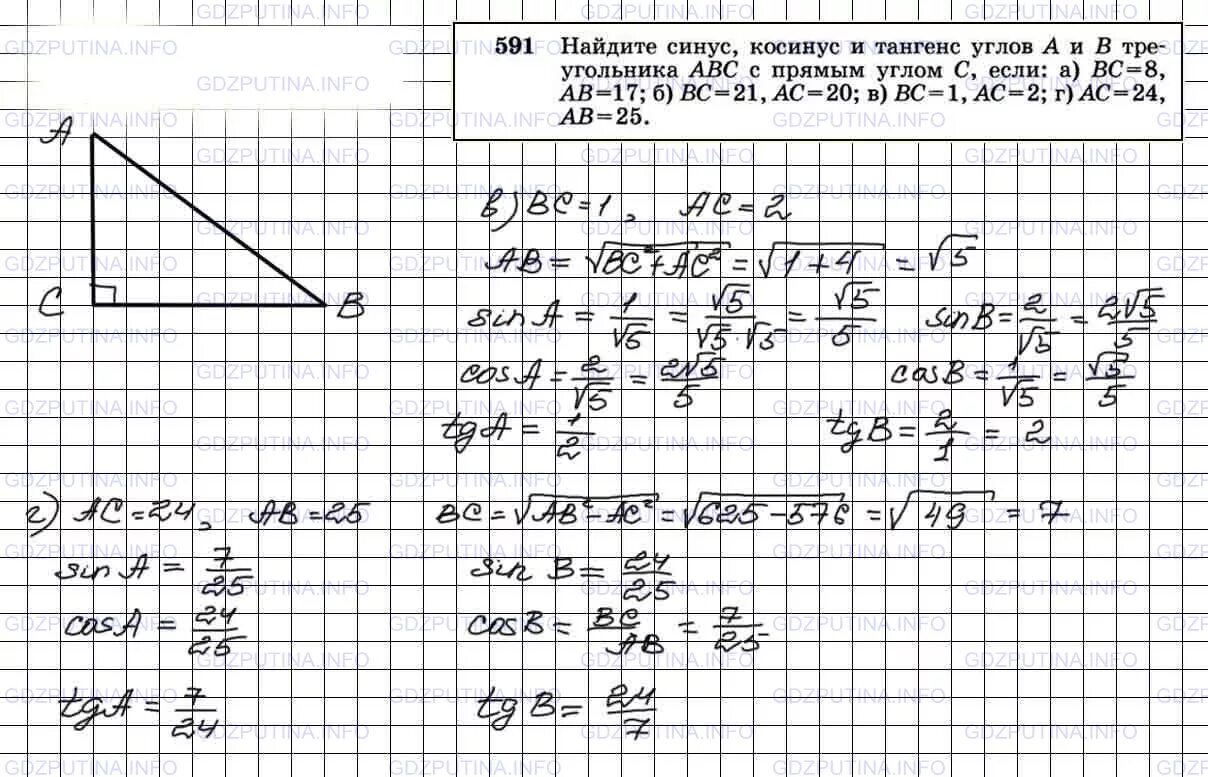 GDZPUTINA.INFO
591 Найдите синус, косинус и тангенс углов A и B тре-
угольника ABC с прямым углом C, если: а) BC=8,
AB=17; б) BC=21, AC=20; в) BC=1, AC=2; г) AC=24,
AB=25.
A
C
B
в) BC=1, AC=2
AB = √(BC²+AC²) = √(1+4) = √5
sin A = 1/√5 = √5/(√5·√5) = √5/5 sin B = 2/√5 = 2√5/5
cos A = 2/√5 = 2√5/5 cos B = 1/√5 = √5/5
tg A = 1/2 tg B = 2/1 = 2
г) AC=24, AB=25 BC = √(AB²−AC²) = √(625−576) = √49 = 7
sin A = 7/25 sin B = 24/25
cos A = 24/25 cos B = BC/AB = 7/25
tg A = 7/24 tg B = 24/7